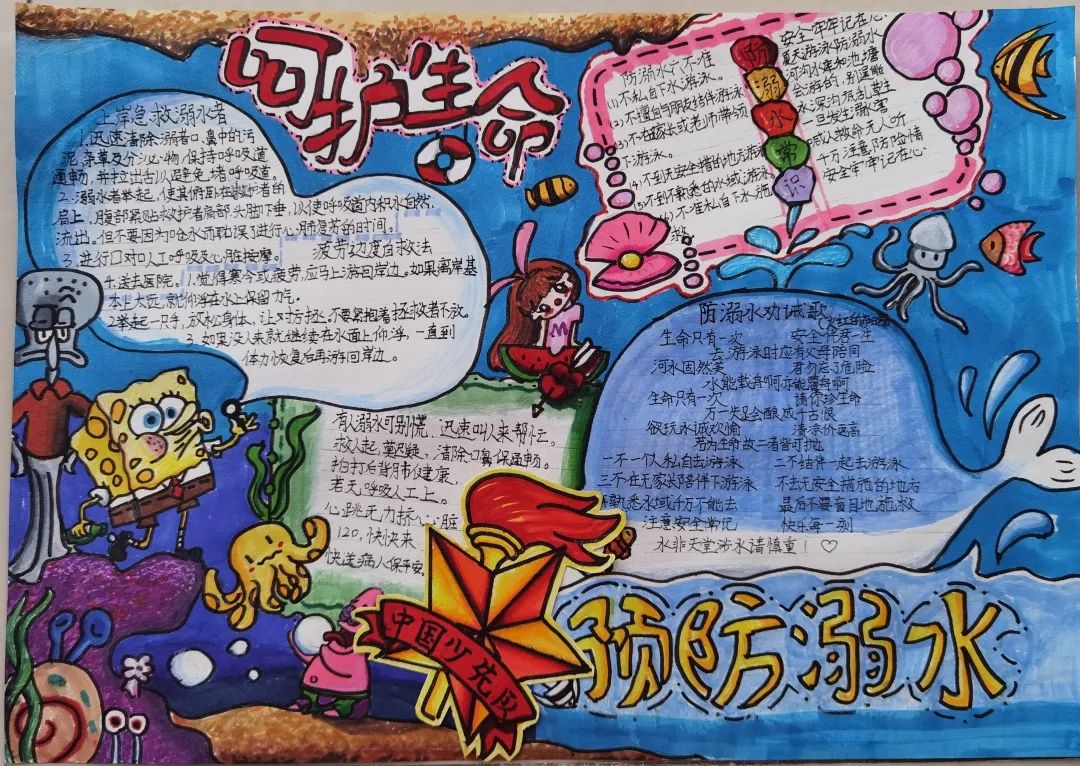 呵护生命
上岸急救溺水者
1.迅速清除溺者口、鼻中的污
泥、杂草及分泌物,保持呼吸道
通畅,并拉出舌头,以避免堵呼吸道。
2.溺水者举起,使其俯卧在救护者的
肩上,腹部紧贴救护者肩部,头脚下垂,以使呼吸道内积水自然
流出。但不要因为呛水而耽误了进行心肺复苏的时间。
3.进行口对口人工呼吸及心脏按摩。
疲劳过度自救法
4.送去医院。
1.觉得寒冷或疲劳,应马上游回岸边。如果离岸甚
太远,就仰浮在水上保留力气。
2.举起一只手,放松身体,让对方拯
不要紧抱着拯救者不放
3.如果没人来就继续在水面上仰浮,一直到
体力恢复后再游回岸边。
防溺水六不准
(1)不私自下水游泳。
(2)不擅自与朋友结伴游泳
(3)不在家长或老师带领
下游泳。
(4)不到无安全措的地方游泳
(5)不到不熟悉的水域游泳
(6)不准私自下水施
救
防
溺
水
常
识
安全牢牢记在心
夏天游泳防溺水
河沟水库和池塘
一旦发生溺水害
大喊救命无人听
千万注意防险情
安全牢牢记在心
防溺水劝诫歌
生命只有一次 安全伴君一生
去游泳时应有父母陪同
河水固然美 君勿忘了危险
水能载舟啊亦能覆舟啊
生命只有一次 请你珍生命
万一失足会酿成千古恨
欲玩水诚欢愉 清凉价更高
若为生命故二者皆可抛
一不一个人私自去游泳 二不结伴一起去游泳
三不在无家长陪伴下游泳 不去无安全措施的地方
不熟悉水域千万不能去 最后不要盲目地施救
注意安全常记 快乐每一刻
水非天堂涉水请慎重!♡
有人溺水可别慌,迅速叫人来帮忙。
救人起,莫迟疑,清除口鼻保通畅。
拍打后背用巾健康,
若无呼吸人工上。
心跳无力挤心脏
120,快快来
快送病人保平安。
中国少先队
预防溺水